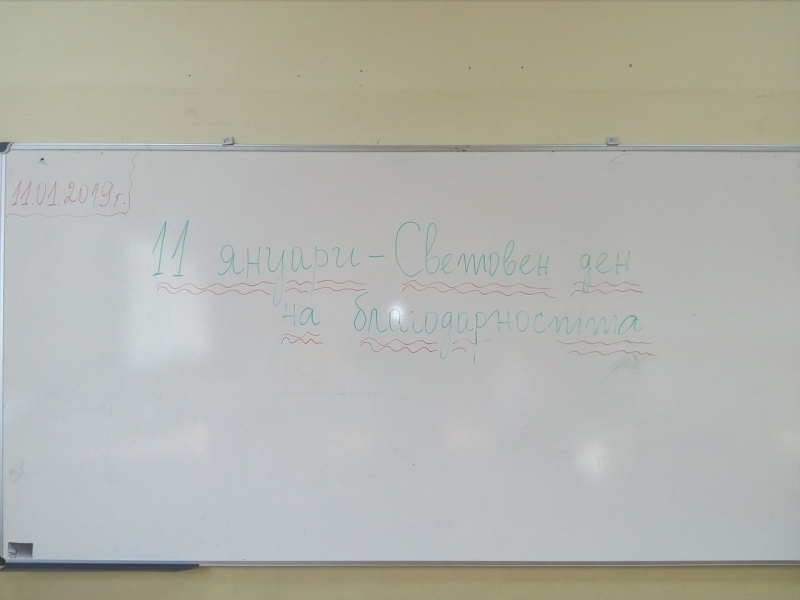 11.01.2019г.
11 януари – Световен ден
на благодарността